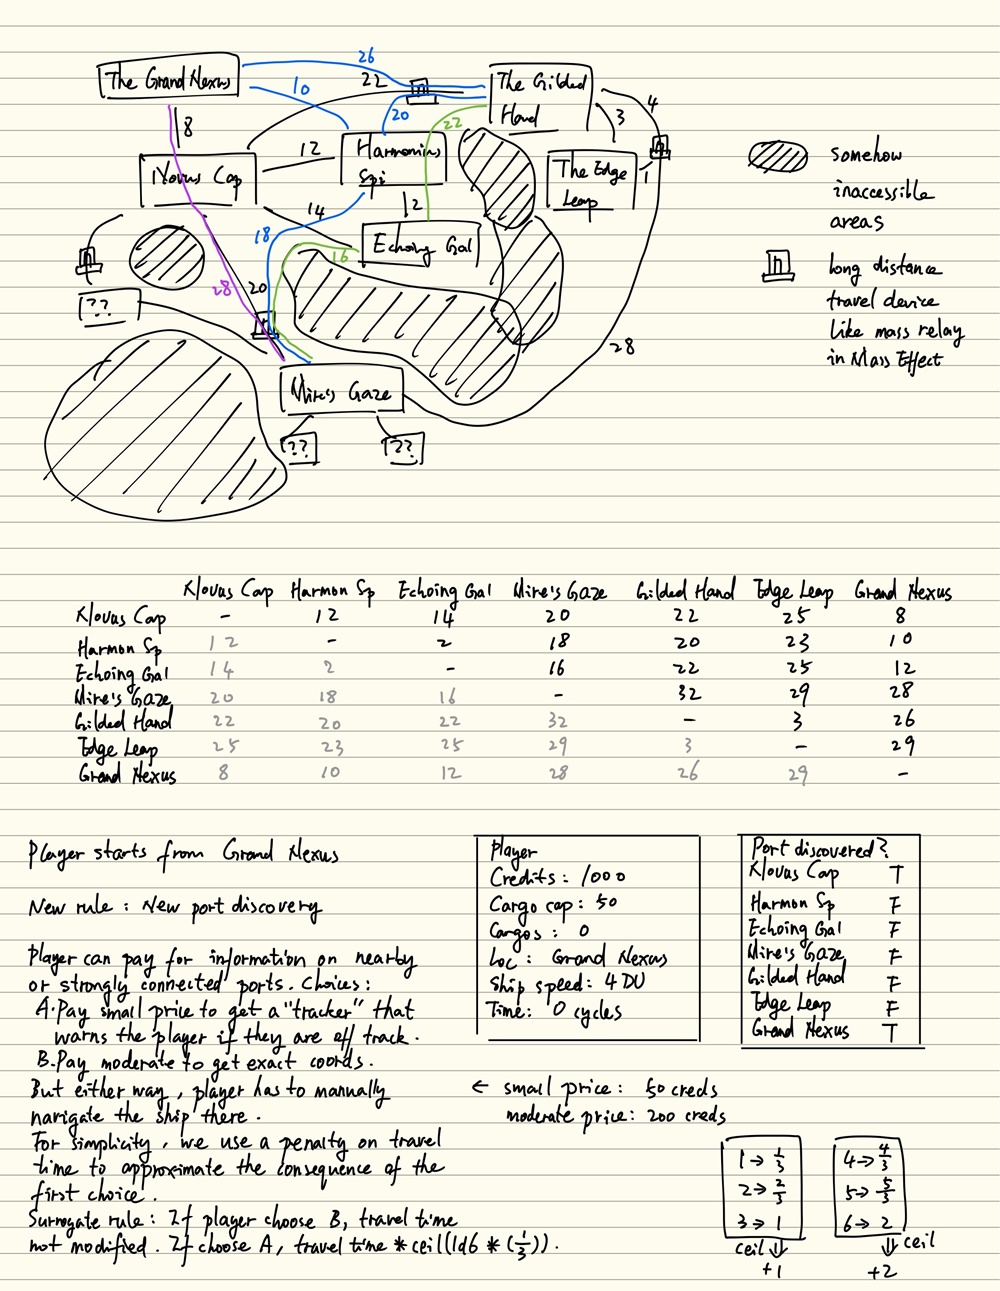 The Grand Nexus
26
22
10
20
22
The Gilded
Hand
4
3
8
12
Harmonius
Spi
Klovus Cap
The Edge
Leap
1
2
14
18
Echoing Gal
16
28
20
??
28
Mire's Gaze
??
??
somehow
inaccessible
areas
long distance
travel device
like mass relay
in Mass Effect
Klovus Cap Harmon Sp Echoing Gal Mire's Gaze Gilded Hand Edge Leap Grand Nexus
Klovus Cap - 12 14 20 22 25 8
Harmon Sp 12 - 2 18 20 23 10
Echoing Gal 14 2 - 16 22 25 12
Mire's Gaze 20 18 16 - 32 29 28
Gilded Hand 22 20 22 32 - 3 26
Edge Leap 25 23 25 29 3 - 29
Grand Nexus 8 10 12 28 26 29 -
Player starts from Grand Nexus
New rule : New port discovery
Player can pay for information on nearby
or strongly connected ports. Choices:
A.Pay small price to get a "tracker" that
warns the player if they are off track.
B.Pay moderate to get exact coords.
But either way, player has to manually
navigate the ship there.
For simplicity, we use a penalty on travel
time to approximate the consequence of the
first choice.
Surrogate rule: If player choose B, travel time
not modified. If choose A, travel time * ceil(1d6 * (1/3)).
Player
Credits: 1000
Cargo cap: 50
Cargos: 0
Loc: Grand Nexus
Ship speed: 4 DU
Time: 0 cycles
Port discovered?
Klovus Cap T
Harmon Sp F
Echoing Gal F
Mire's Gaze F
Gilded Hand F
Edge Leap F
Grand Nexus T
← small price: 50 creds
moderate price: 200 creds
1→ 1/3
2→ 2/3
3→ 1
ceil ⇓
+1
4→ 4/3
5→ 5/3
6→ 2
⇓ ceil
+2